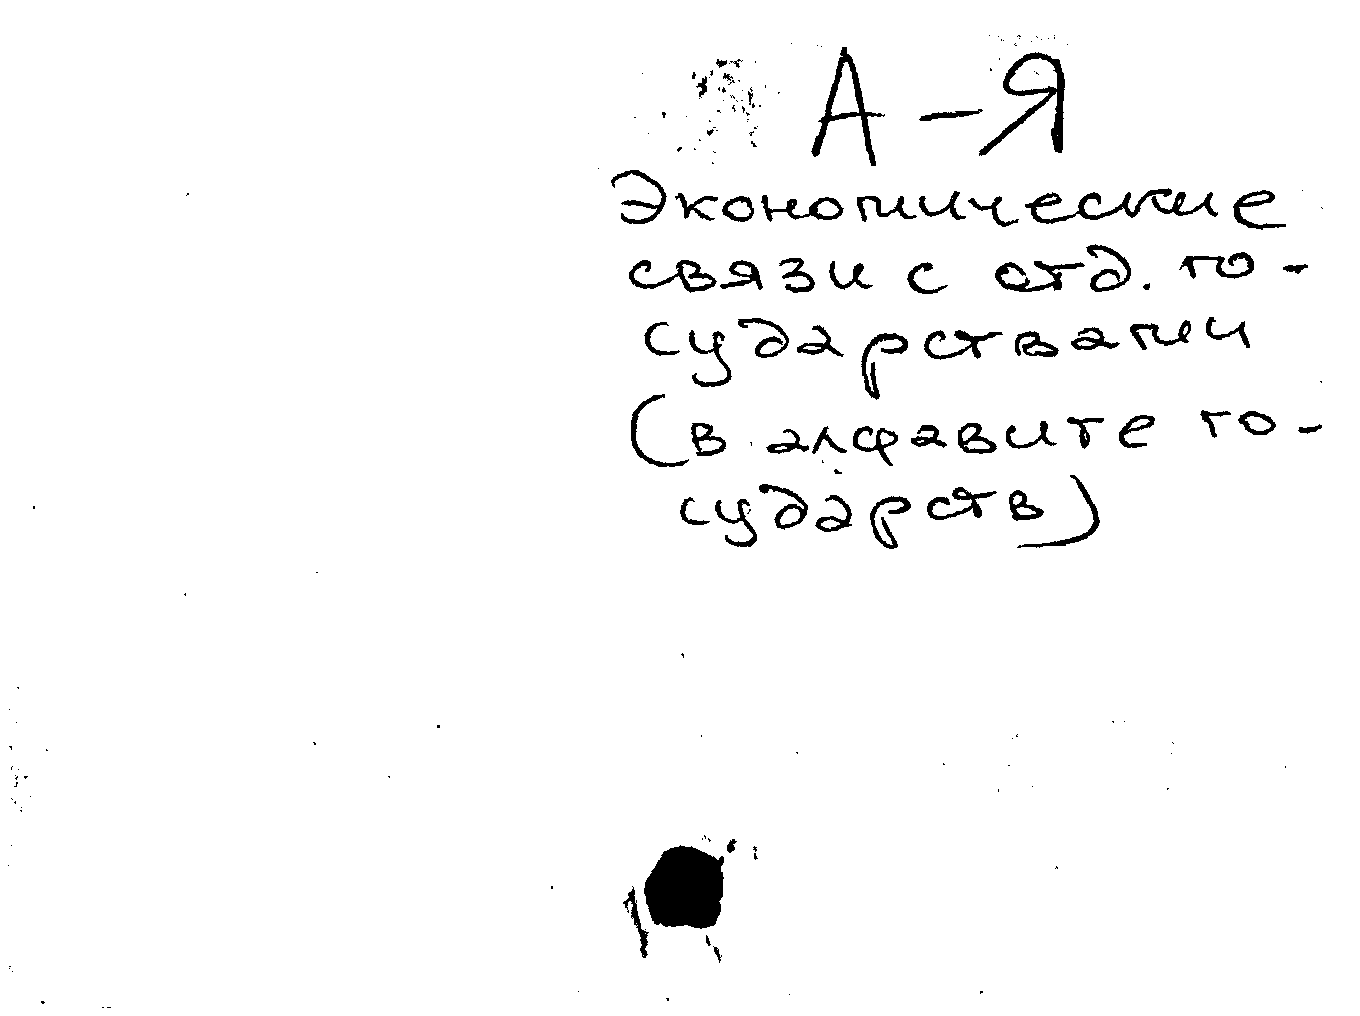 А – Я
Экономические
связи с отд. го-
сударствами
(в алфавите го-
сударств)